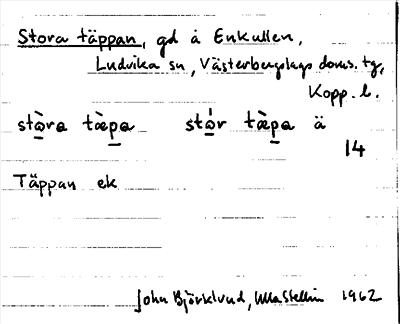 Stora täppan, gd å Enkullen,
Ludvika sn, Västerbergslags doms. tg,
Kopp. l.
stɷ̀ra tæ̀pa stɷ́r tæ̀pa ä
14
Täppan ek
John Björklund, Ulla Stellin 1962